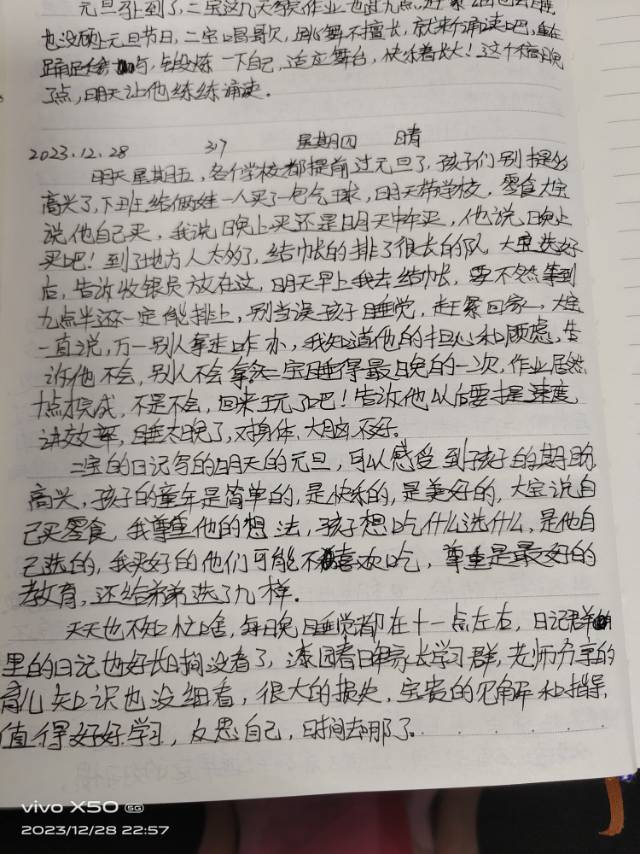 元旦马上到了,二宝这几天写完作业也近九点,
也没硕上元旦节日,二宝唱歌,跳舞不擅长,就来个诵读吧,重在
锻炼一下自己,适应舞台,快乐着长大!这个稿晚
了点,明天让他练练诵读。
2023.12.28 317 星期四 晴
明天星期五,各个学校都提前过元旦了,孩子们别提多
高兴了,下班给俩娃一人买了一包气球,明天带学校,零食大宝
说他自己买,我说晚上买还是明天中午买,他说晚上
买吧!到了地方人太多了,结帐的排了很长的队,大宝选好
后,告诉收银员放在这,明天早上我去结帐,要不然等到
九点半还不一定能排上,别当误孩子睡觉,赶紧回家,大宝
一直说,万一别人拿走咋办,我知道他的担心和顾虑,告
诉他不会,别人不会拿。二宝睡得最晚的一次,作业居然
十点才完成,不是不会,回来玩了吧!告诉他以后要提速度,
讲效率,睡太晚了,对身体、大脑不好。
二宝的日记写的明天的元旦,可以感受到孩子的期盼,
高兴,孩子的童年是简单的,是快乐的,是美好的,大宝说自
己买零食,我尊重他的想法,孩子想吃什么选什么,是他自
己选的,我买好的他们可能不喜欢吃,尊重是最好的
教育,还给弟弟选了几样。
天天也不知忙啥,每日晚睡觉都在十一点左右,日记群
里的日记也好长时间没看了,漆园春日家长学习群,老师分享的
育儿知识也没细看,很大的损失,宝贵的见解和指导,
值得好好学习,反思自己,时间去那了。......
vivo X50 5G
2023/12/28 22:57